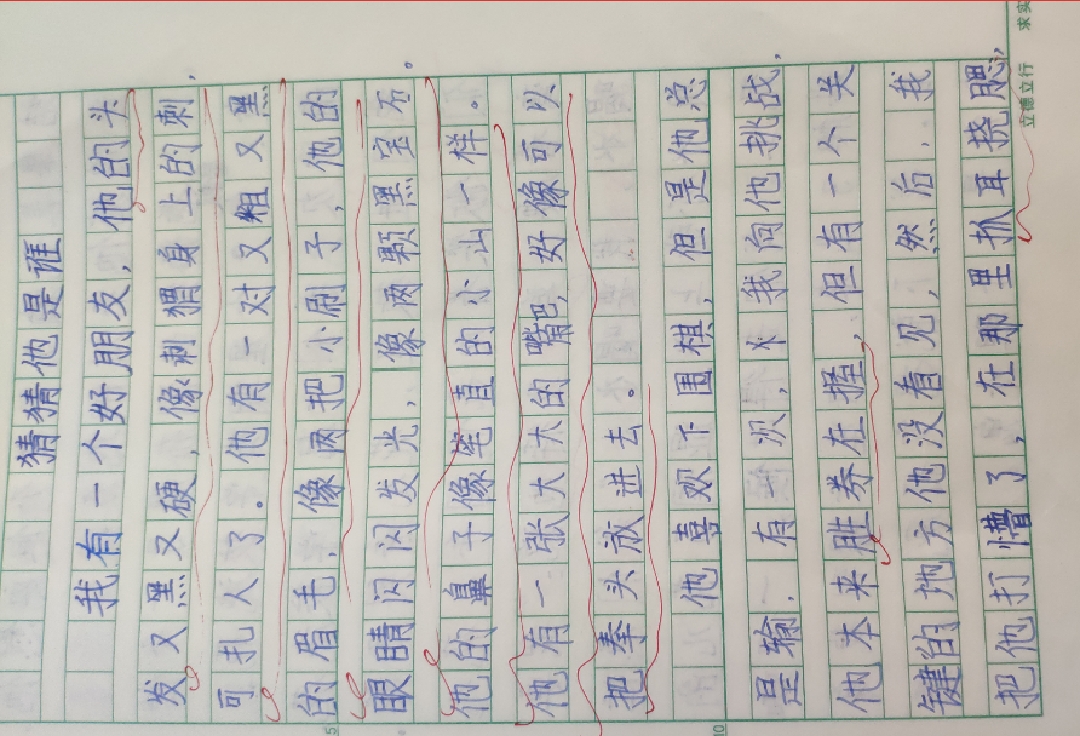 猜猜他是谁
我有一个好朋友,他的头
发又黑又硬,像刺猬身上的刺,
可扎人了。他有一对又粗又黑
的眉毛,像两把小刷子,他的
眼睛闪闪发光,像两颗黑宝石。
他的鼻子像笔直的小山一样。
他有一张大大的嘴巴,好像可以
把拳头放进去。
他喜欢下围棋,但是他总
是输.有一次,我向他挑战,
他本来胜券在握,但有一个关
键的地方他没看见,然后,我
把他打懵了,在那里抓耳挠腮,
5
10
立德立行
求实